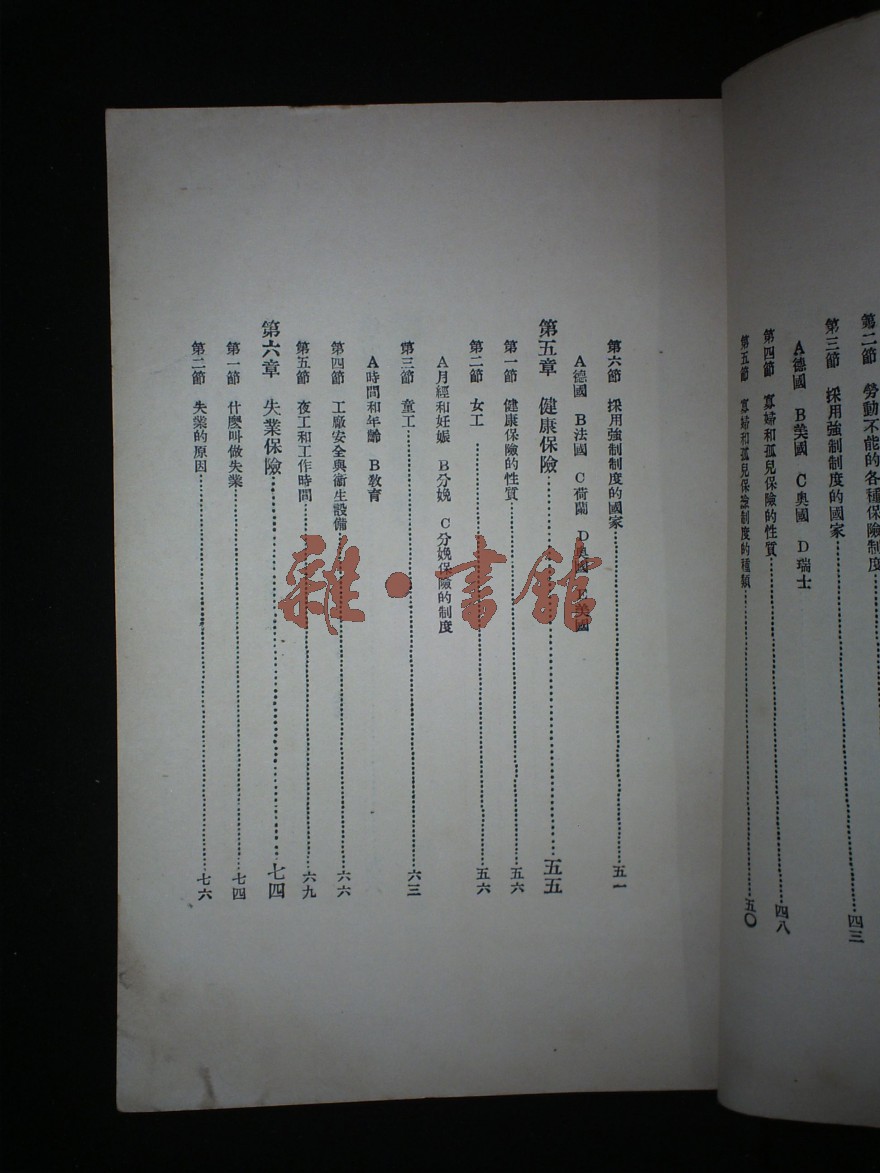 第二節 勞動不能的各種保險制度
第三節 採用強制制度的國家…………四三
A德國 B美國 C奧國 D瑞士
第四節 寡婦和孤兒保險的性質…………四八
第五節 寡婦和孤兒保險制度的種類…………五〇
第六節 採用強制制度的國家…………五一
A德國 B法國 C荷蘭 D奧國 E美國
第五章 健康保險…………五五
第一節 健康保險的性質…………五六
第二節 女工…………五六
A月經和妊娠 B分娩 C分娩保險的制度
第三節 童工…………六三
A時間和年齡 B教育
第四節 工廠安全與衞生設備…………六六
第五節 夜工和工作時間…………六九
第六章 失業保險…………七四
第一節 什麼叫做失業…………七四
第二節 失業的原因…………七六
雜·書館